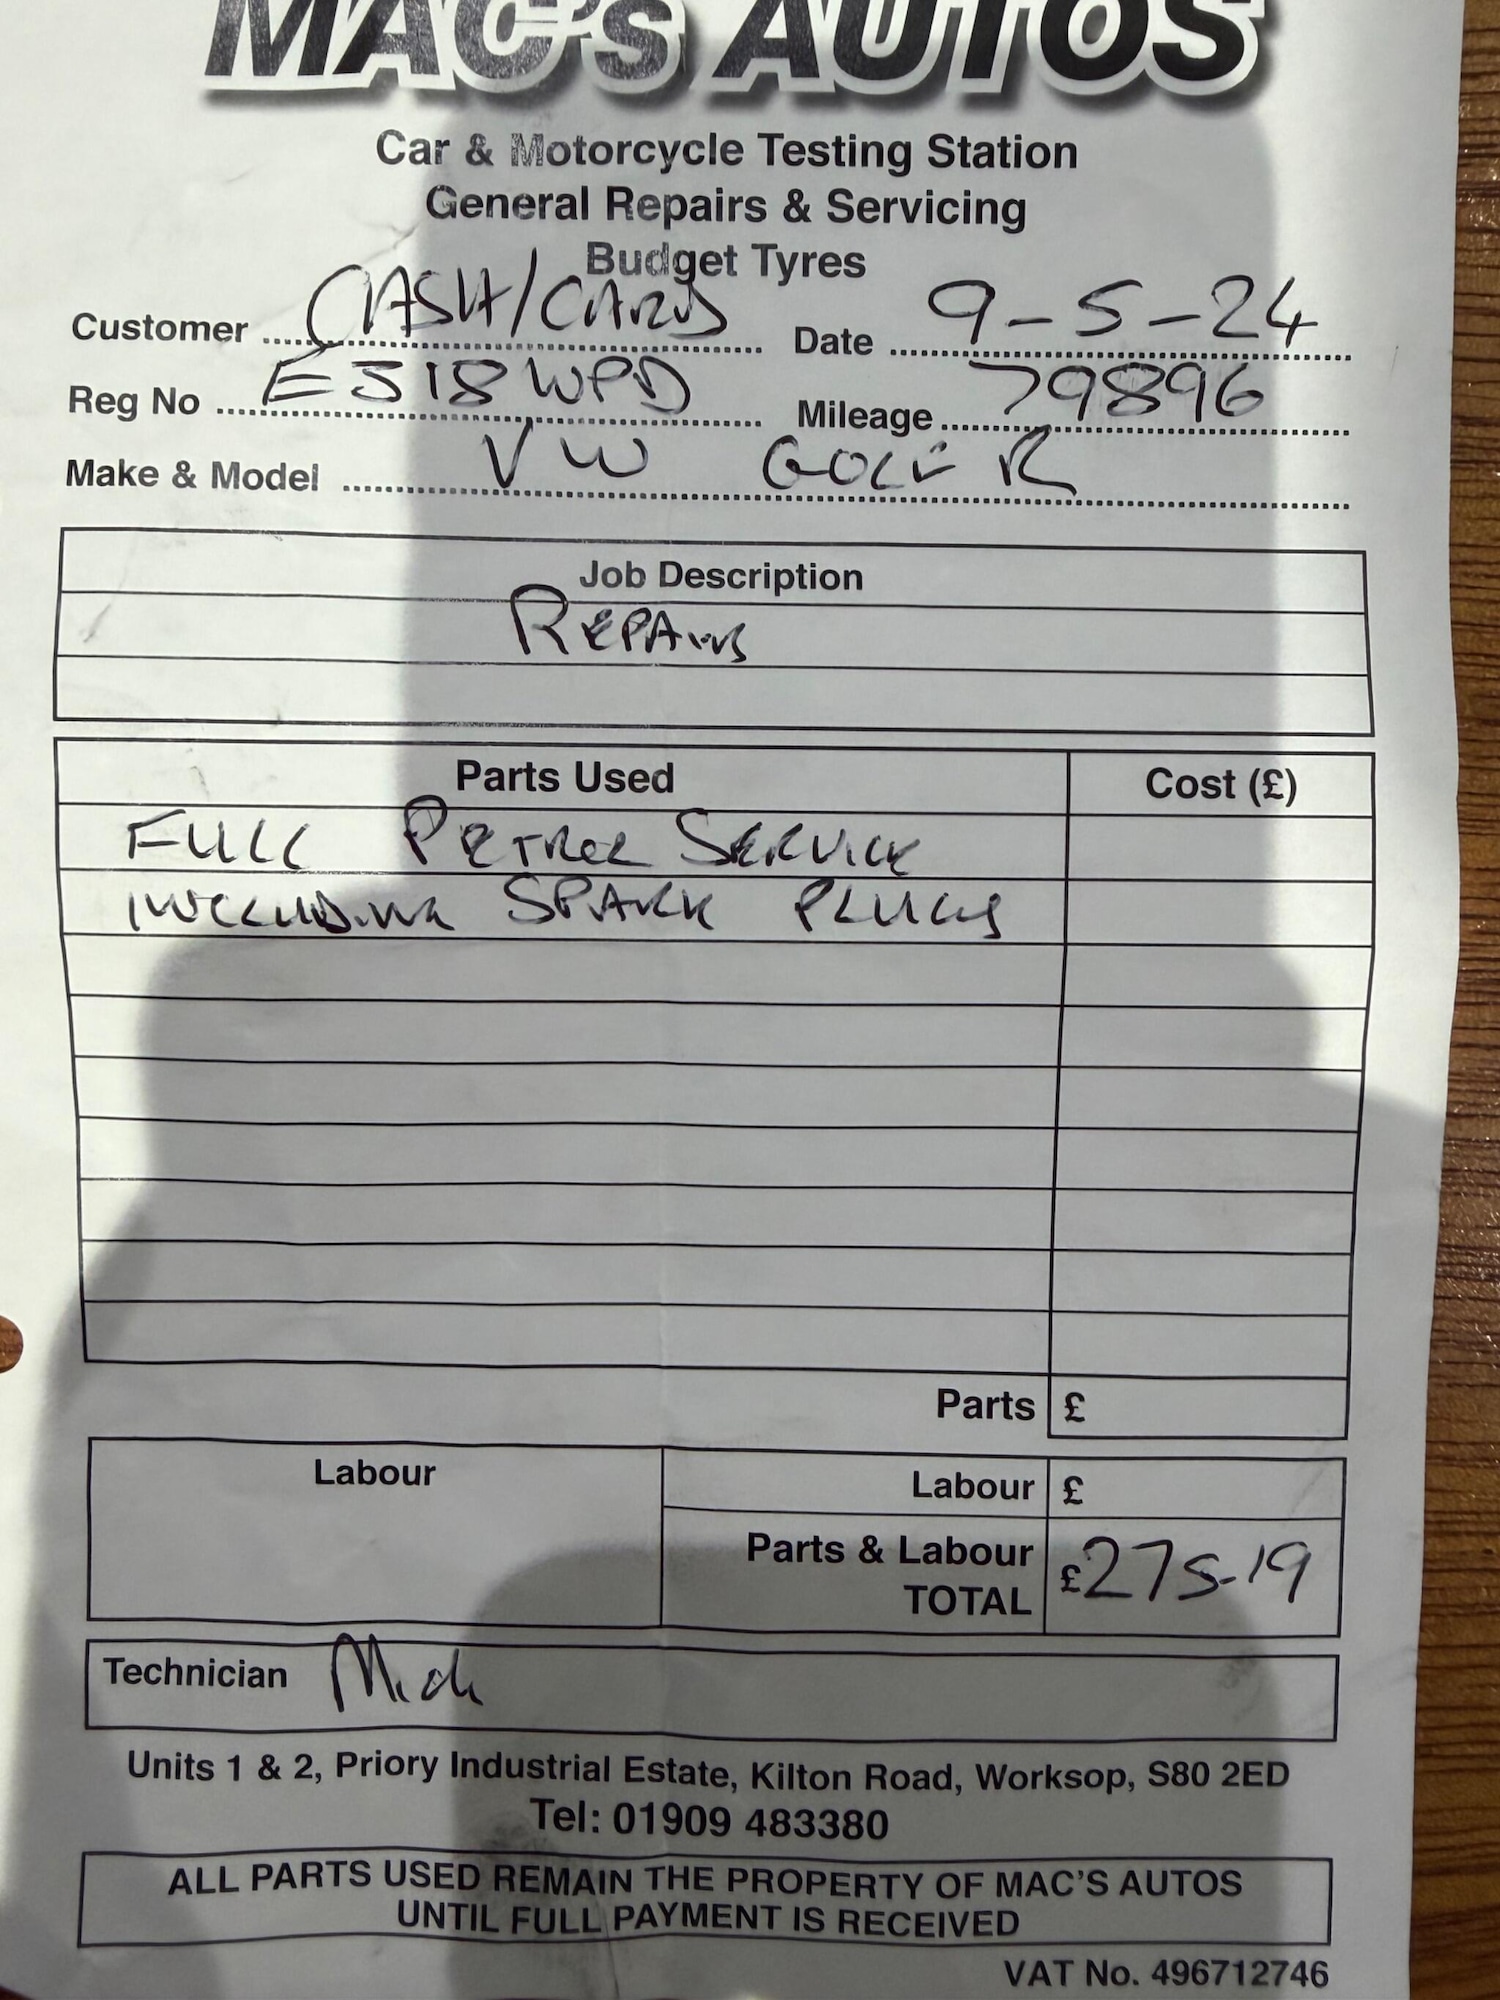 MAC's AUTOS
Car & Motorcycle Testing Station
General Repairs & Servicing
Budget Tyres
Customer CASH/CARD Date 9-5-24
Reg No EJ18 WPD Mileage 79896
Make & Model VW GOLF R
Job Description
REPAIRS
Parts Used Cost (£)
FULL PETROL SERVICE
INCLUDING SPARK PLUGS
Parts £
Labour Labour £
Parts & Labour
TOTAL £275-19
Technician Mick
Units 1 & 2, Priory Industrial Estate, Kilton Road, Worksop, S80 2ED
Tel: 01909 483380
ALL PARTS USED REMAIN THE PROPERTY OF MAC'S AUTOS
UNTIL FULL PAYMENT IS RECEIVED
VAT No. 496712746